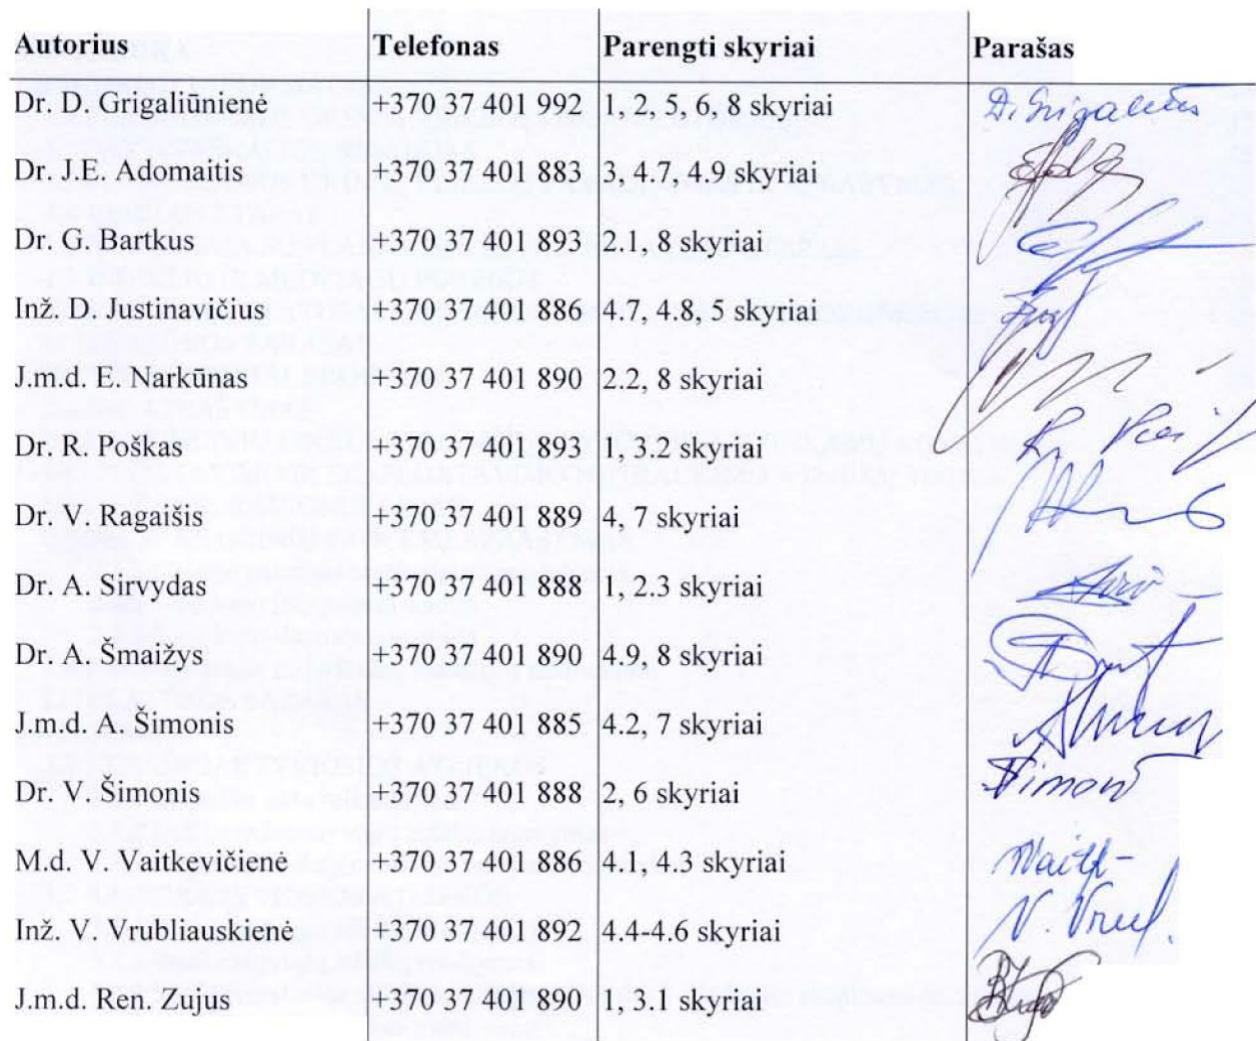 Autorius Telefonas Parengti skyriai Parašas
Dr. D. Grigaliūnienė +370 37 401 992 1, 2, 5, 6, 8 skyriai
Dr. J.E. Adomaitis +370 37 401 883 3, 4.7, 4.9 skyriai
Dr. G. Bartkus +370 37 401 893 2.1, 8 skyriai
Inž. D. Justinavičius +370 37 401 886 4.7, 4.8, 5 skyriai
J.m.d. E. Narkūnas +370 37 401 890 2.2, 8 skyriai
Dr. R. Poškas +370 37 401 893 1, 3.2 skyriai
Dr. V. Ragaišis +370 37 401 889 4, 7 skyriai
Dr. A. Sirvydas +370 37 401 888 1, 2.3 skyriai
Dr. A. Šmaižys +370 37 401 890 4.9, 8 skyriai
J.m.d. A. Šimonis +370 37 401 885 4.2, 7 skyriai
Dr. V. Šimonis +370 37 401 888 2, 6 skyriai
M.d. V. Vaitkevičienė +370 37 401 886 4.1, 4.3 skyriai
Inž. V. Vrubliauskienė +370 37 401 892 4.4-4.6 skyriai
J.m.d. Ren. Zujus +370 37 401 890 1, 3.1 skyriai